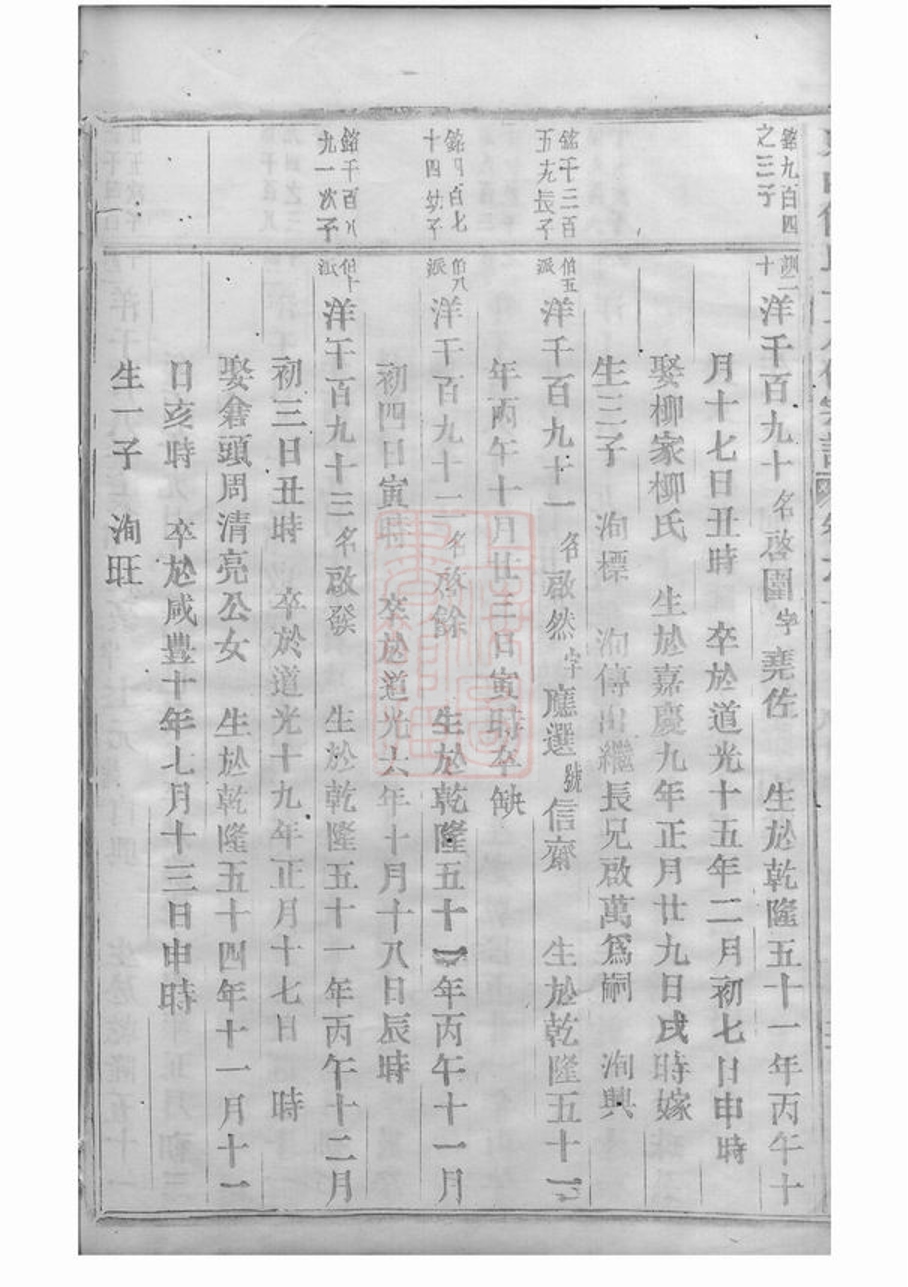 銘九百四
之三子
洋千百九十 名啓圍 字堯佐 生於乾隆五十一年丙午十
月十七日丑時 卒於道光十五年二月初七日申時
娶柳家柳氏 生於嘉慶九年正月廿九日戌時嫁
生三子 洵標 洵傳出繼長兄啟萬爲嗣 洵興
銘千三百
五九長子
伯五
派
洋千百九十一 名啟然 字應選 號信齋 生於乾隆五十一
年丙午十月廿三日寅時卒缺
銘日百七
十四幼子
伯八
派
洋千百九十二 名啓餘 生於乾隆五十一年丙午十一月
初四日寅時 卒於道光六年十月十八日辰時
銘千百八
九一次子
伯十
派
洋千百九十三 名啟發 生於乾隆五十一年丙午十二月
初三日丑時 卒於道光十九年正月十七日 時
娶畲頭周清亮公女 生於乾隆五十四年十一月十一
日亥時 卒於咸豐十年七月十三日申時
生一子 洵旺